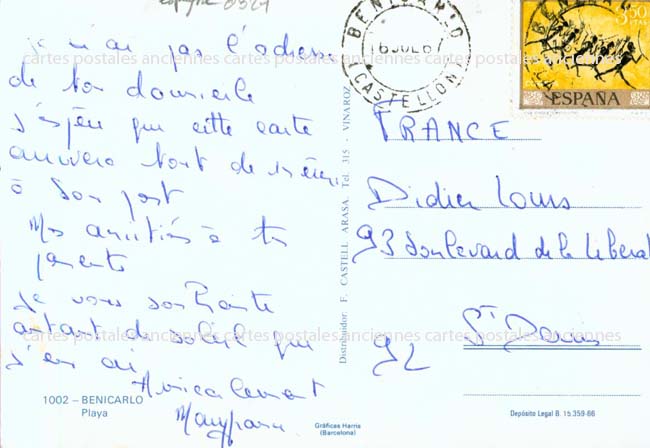 Espagne
je n'ai pas l'adresse
de ton domicile
j'espère que cette carte
arrivera tout de même
à son port
Mes amitiés à tes
parents
Je vous souhaite
autant de soleil que
j'en ai
Amicalement
1002 – BENICARLO
Playa
Distribuidor: F. CASTELL ARASA. Tel. 315 - VINAROZ
Gráficas Harris
(Barcelona)
BENICARLO
(CASTELLON)
3,50
PTAS
ESPAÑA
FRANCE
Didier Louis
93 boulevard de la Libérat
St Denis
92
Depósito Legal B. 15.359-66
cartes postales anciennes cartes postales anciennes cartes postales anciennes
cartes postales anciennes cartes postales anciennes cartes postales anciennes